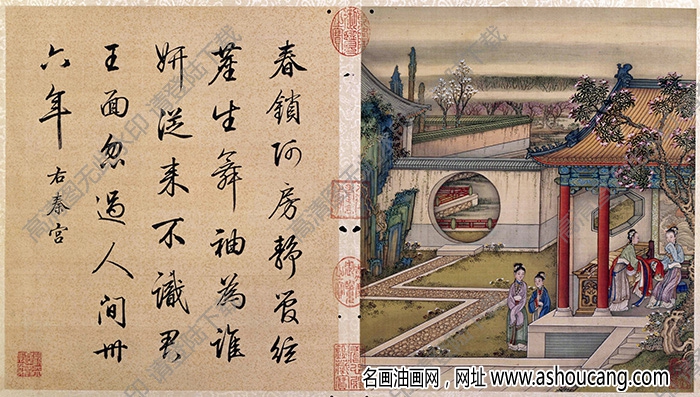 春鎖阿房静管絃
塵生舞袖為誰
妍從来不識君
王面忽過人間卅
六年
右秦宮
名画油画网，网址 www.ashoucang.com